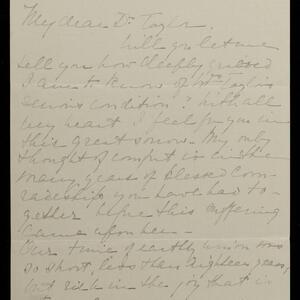 My dear Dr. Taylor.
Will you let me
tell you how deeply grieved
I am to know of Mrs. Taylor's
serious condition? With all
my heart I feel for you in
this great sorrow. My only
thought of comfort is in the
many years of blessed com-
radeship you have had to-
gether before this suffering
came upon her -
Our time of earthly union was
so short, less than eighteen years,
but rich in the joy that is